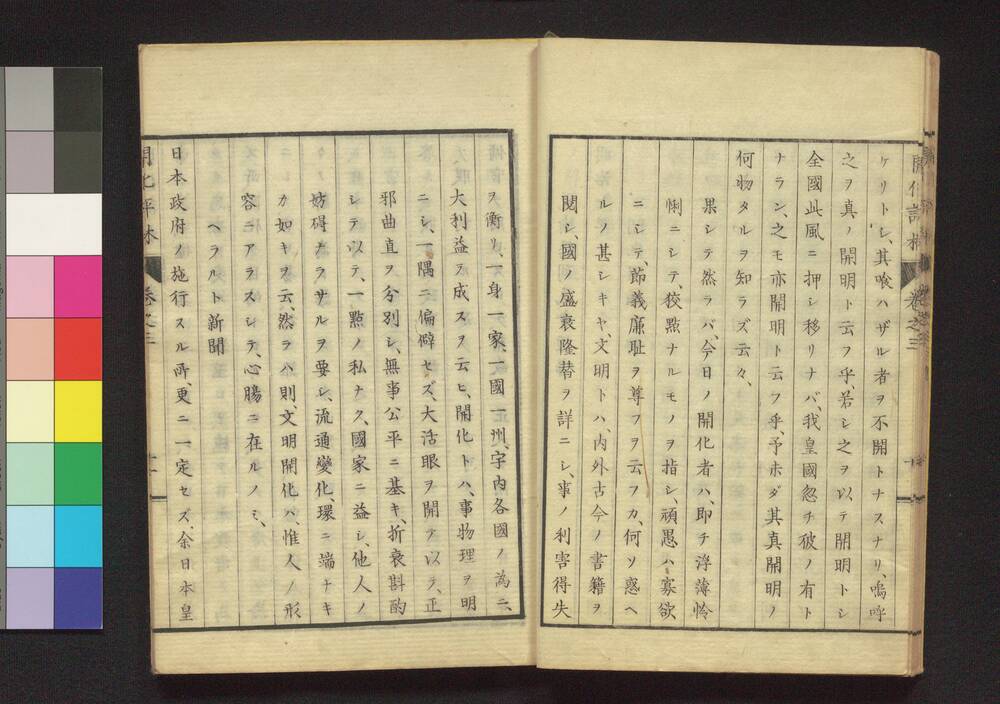 開化評林 巻之三
ケリトシ、其喰ハザル者ヲ不開トナスナリ、嗚呼
之ヲ真ノ開明ト云フ乎、若シ之ヲ以テ開明トシ
全國此風ニ押シ移リナバ、我皇國忽チ破ノ有ト
ナラン、之モ亦開明ト云フ乎、予ホダ其真開明ノ
何物タルヲ知ラズ云々、
果シテ然ラバ、今日ノ開化者ハ、即チ浮薄怜
悧ニシテ、狡黠ナルモノヲ指シ、頑愚ハ寡欲
ニシテ、節義廉耻ヲ尊フヲ云フカ、何ソ惑ヘ
ルノ甚シキヤ、文明トハ、内外古今ノ書籍ヲ
閲シ、國ノ盛衰隆替ヲ詳ニシ、事ノ利害得失
ヲ衡リ、一身一家、一國一洲、宇内各國ノ為ニ、
大利益ヲ成スヲ云ヒ、開化トハ、事物理ヲ明
ニシ、一隅ニ偏僻セズ、大活眼ヲ開テ以テ、正
邪曲直ヲ分別シ、無事公平ニ基キ、折衷斟酌
シテ以テ、一點ノ私ナク、國家ニ益シ、他人ノ
妨碍ナラサルヲ要シ、流通變化、環ニ端ナキ
カ如キヲ云、然ラハ則、文明開化ハ、惟人ノ形
容ニアラスシテ、心腸ニ在ルノミ、
ヘラルト新聞
日本政府ノ施行スル所、更ニ一定セズ、余日本皇
開化評林 巻之三